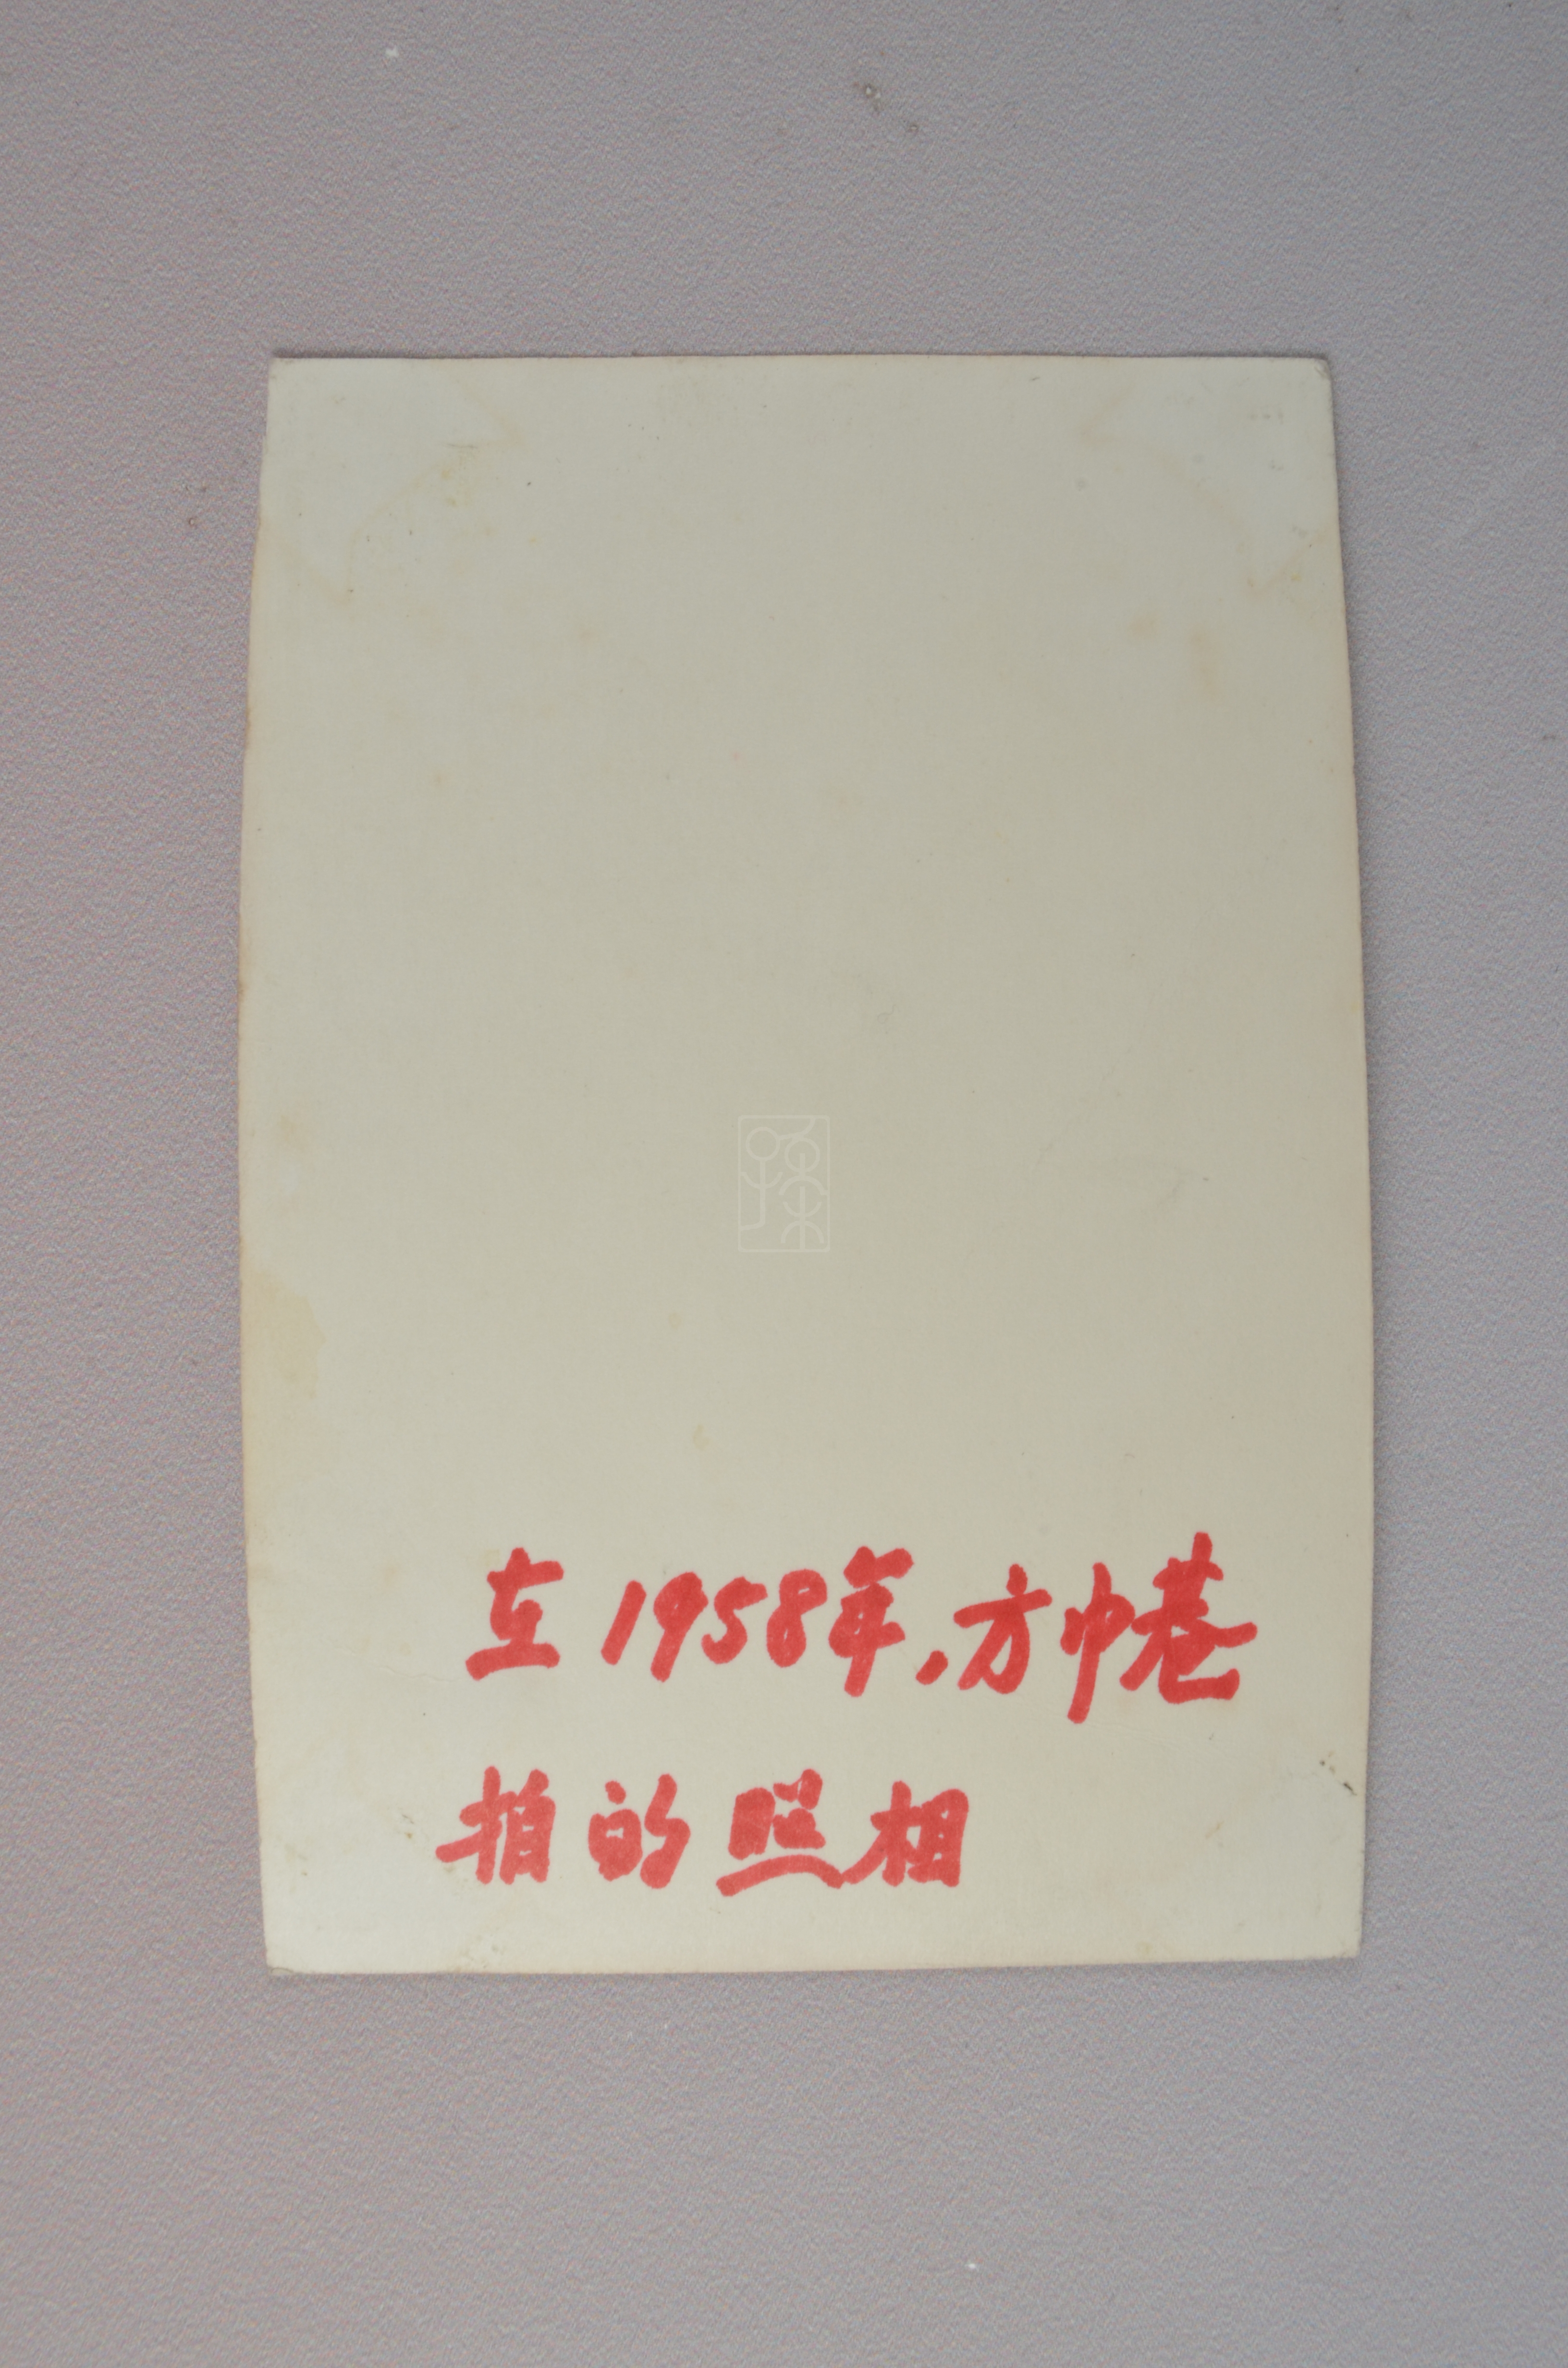 在1958年，方巾巷
拍的照相